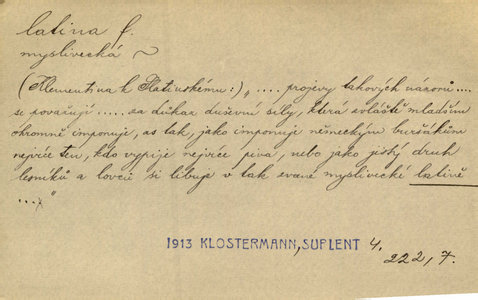 latina f.
myslivecká ~
(Klementina k Slatinskému:) „.... projevy takových názorů ....
se považují ..... za důkaz duševní síly, která zvláště mladším
ohromně imponuje, as tak, jako imponuje německým buršákům
nejvíce ten, kdo vypije nejvíce piva, nebo jako jistý druh
lesníků a lovců si libuje v tak zvané myslivecké latině
...."
1913 KLOSTERMANN, SUPLENT 4.
222, 7.